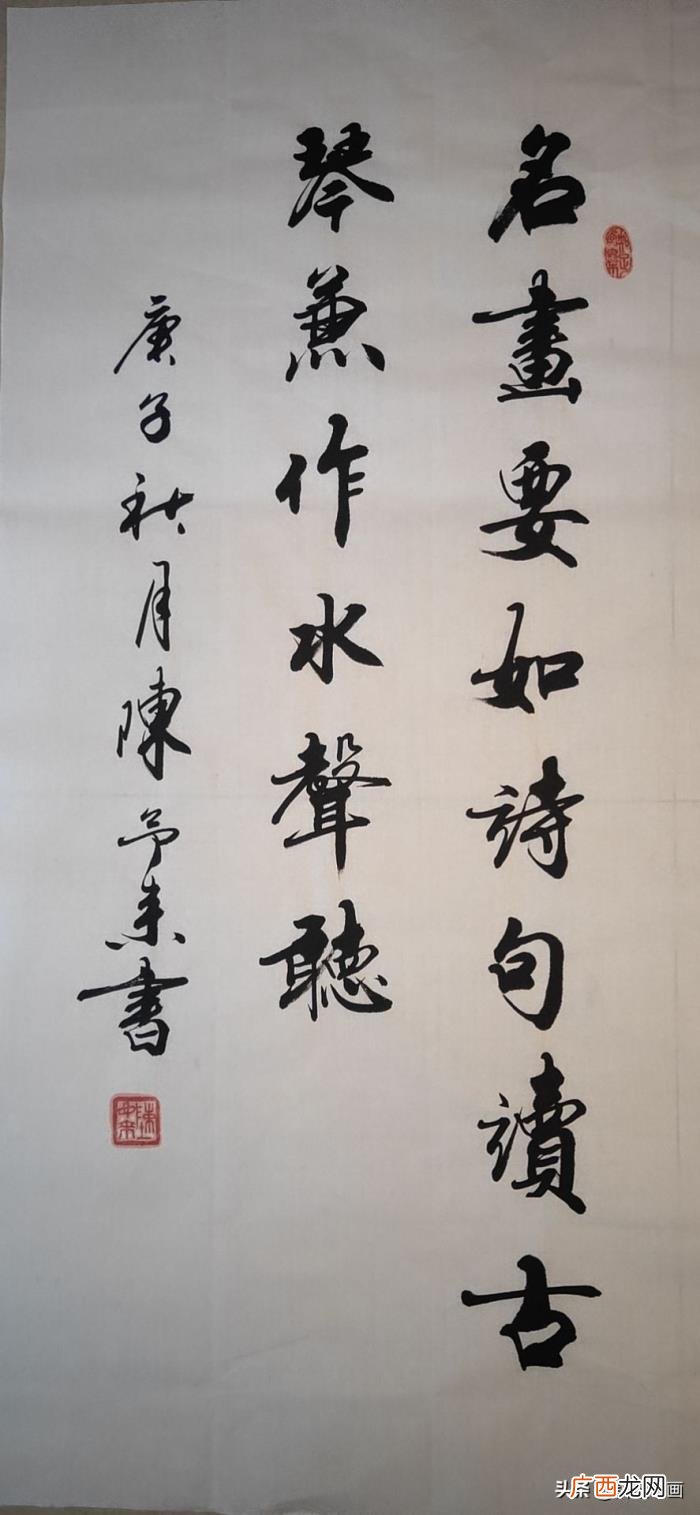 名畫要如詩句讀古
琴兼作水聲聽
庚子秋月陳予束書
头条
广西龙网
画